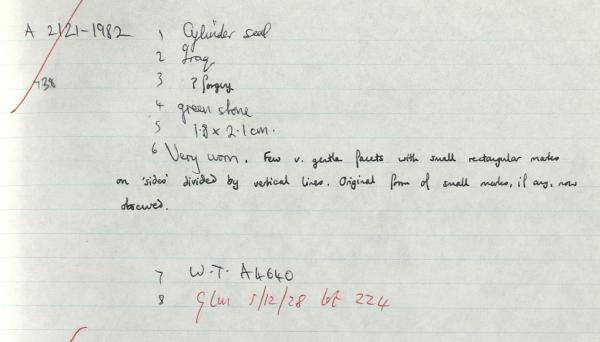 A 2121-1982 1 Cylinder seal
2 Iraq
-138 3 ? forgery
4 green stone
5 1.8 x 2.1 cm.
6 Very worn. Few v. gentle facets with small rectangular marks
on 'sides' divided by vertical lines. Original form of small marks, if any, now
obscured.
7 W.T. A4640
8 5/12/28 lot 224